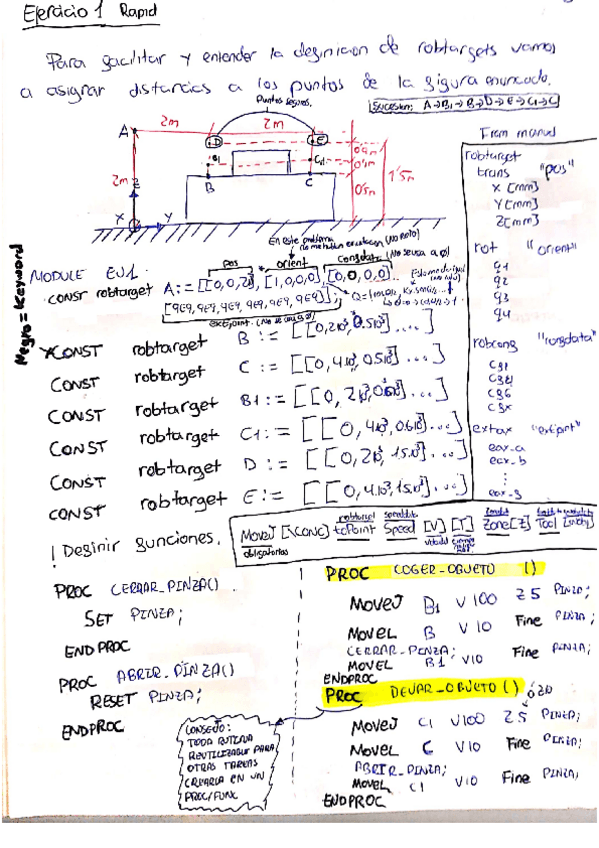 Ejercicio 1 Rapid
Para facilitar y entender la definicion de robtargets vamos
a asignar distancias a los puntos de la figura enunciado.
Puntos seguros.
Sucesion: A→B1→B→D→E→C1→C
A
2m
2m
D
E
B1
C1
B
C
2m
0'5m
1'5m
Z
X
Y
From manual
robtarget
trans "pos"
X [mm]
Y [mm]
Z [mm]
rot "orient"
q1
q2
q3
q4
robconf "confdata"
cf1
cf4
cf6
cfx
extax "extjoint"
eax_a
eax_b
⋮
Negro = Keyword
En este problema
pos
orient
Confdata (No se usa a 0)
MODULE EJ1
CONST robtarget A := [[0,0,2], [1,0,0,0] [0,0,0,0]
[9E9, 9E9, 9E9, 9E9, 9E9, 9E9]];
CONST robtarget B := [[0,2.10³,0.5.10³] ....]
CONST robtarget C := [[0,4.10³,0.5.10³] ....]
CONST robtarget B1 := [[0,2.10³,0.6.10³] ...]
CONST robtarget C1 := [[0,4.10³,0.6.10³] ...]
CONST robtarget D := [[0,2.10³,1.5.10³] ...]
CONST robtarget E := [[0,4.10³,1.5.10³] ...]
robtarget speeddata
MoveJ [\CONC] toPoint Speed [V] [T] Zone [Z] Tool
obligatorios
! Definir funciones.
PROC CERRAR_PINZA()
SET PINZA;
ENDPROC
PROC ABRIR_PINZA()
RESET PINZA;
ENDPROC
CONSEJO:
TODA RUTINA
REUTILIZABLE PARA
OTRAS TAREAS
CREARLA EN UN
PROC/FUNC
PROC COGER_OBJETO ()
MoveJ B1 V100 Z5 PINZA;
MoveL B V10 Fine PINZA;
CERRAR_PINZA;
MOVEL B1 V10 Fine PINZA;
ENDPROC
PROC DEJAR_OBJETO ()
ó z0
MoveJ C1 V100 Z5 PINZA;
MoveL C V10 Fine PINZA;
ABRIR_PINZA;
MoveL C1 V10 Fine PINZA;
ENDPROC